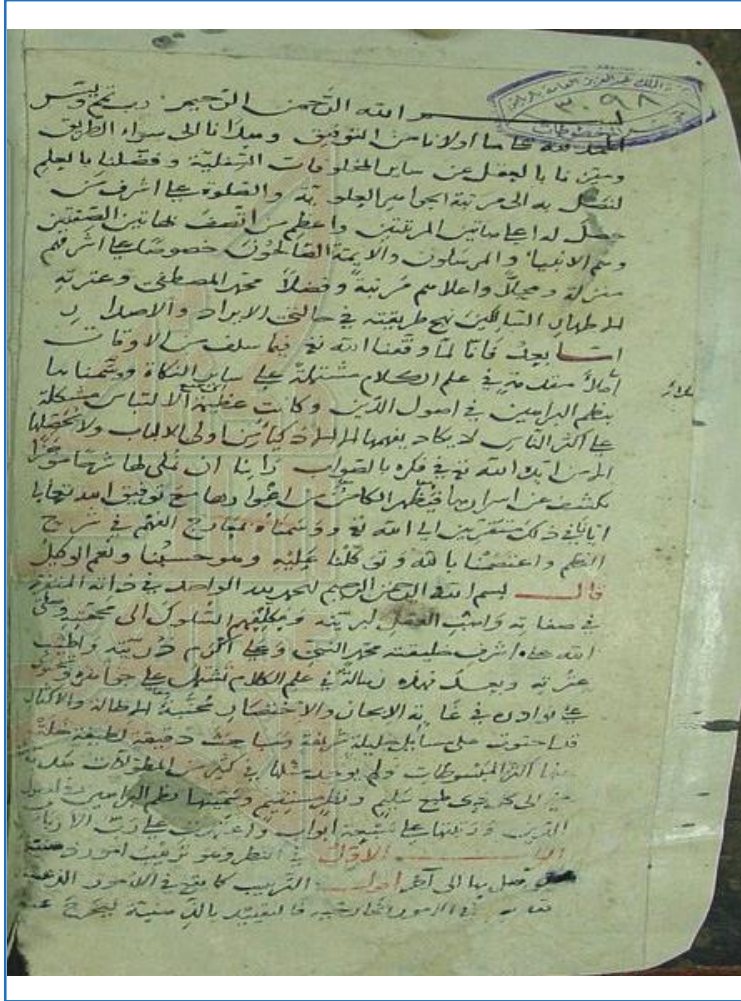 الملك عبد العزيز العامة بالرياض
٣٠٩٨
بسم الله الرحمن الرحيم رب تمم ويسر
الحمد لله على ما اولانا من التوفيق وهدانا الى سواء الطريق
وميزنا بالعقل عن ساير المخلوقات السفلية وفضلنا بالعلم
لنصل به الى مرتبة الجواهر العلوية والصلوة على اشرف من
حصل له اعلى هاتين المرتبتين واعظم من اتصف بهاتين الصفتين
وهم الانبياء والمرسلون والايمة الصالحون خصوصا على اشرفهم
منزلة ومحلا واعلاهم مرتبة وفضلا محمد المصطفى وعترته
الاطهار السالكين نهج طريقته في حالتي الايراد والاصدار
اما بعد فانا لما وفقنا الله تع فيما سلف من الاوقات
املاء مقدمة في علم الكلام مشتملة على ساير النكاة ووسمناها
بنظم البراهين في اصول الدين وكانت عظيمة الالتباس مشكلة
على اكثر الناس لا يكاد يفهمها الا اولي الالباب ولا يحصلها
الا من ايده الله تع في فكره بالصواب راينا ان نملي لها شرحا موجزا
يكشف عن اسرارها ويظهر الكامن من اغوارها مع توفيق الله تع ايانا
في ذلك متقربين الى الله تع ووسمناه بمعارج الفهم في شرح
النظم واعتصمنا بالله وتوكلنا عليه وهو حسبنا ونعم الوكيل
قال بسم الله الرحمن الرحيم الحمد لله الواحد في ذاته المتفرد
في صفاته واهب العقل لبريته ومكلفهم السلوك الى محجته وصلى
الله على اشرف خليقته محمد النبي وعلى اكرم ذريته واطيب
عترته وبعد فهذه رسالة في علم الكلام تشتمل على جواهره وتحتوي
على نوادره في غاية الايجاز والاختصار مجنبة الاطالة والاكثار
قد احتوت على مسايل جليلة شريفة ومباحث دقيقة لطيفة خلت
عنها اكثر المبسوطات ولم يوجد مثلها في كثير من المطولات هدية
مني الى كل ذي طبع سليم ونظر مستقيم وسميتها نظم البراهين في اصول
الدين ورتبتها على سبعة ابواب واعتمدت على رب الارباب
الباب الاول في النظر وهو ترتيب امور ذهنية
يتوصل بها الى آخر اقول الترتيب كما يقع في الامور الذهنية
يقع في الامور الخارجية فالتقييد بالذهنية ليخرج عنه